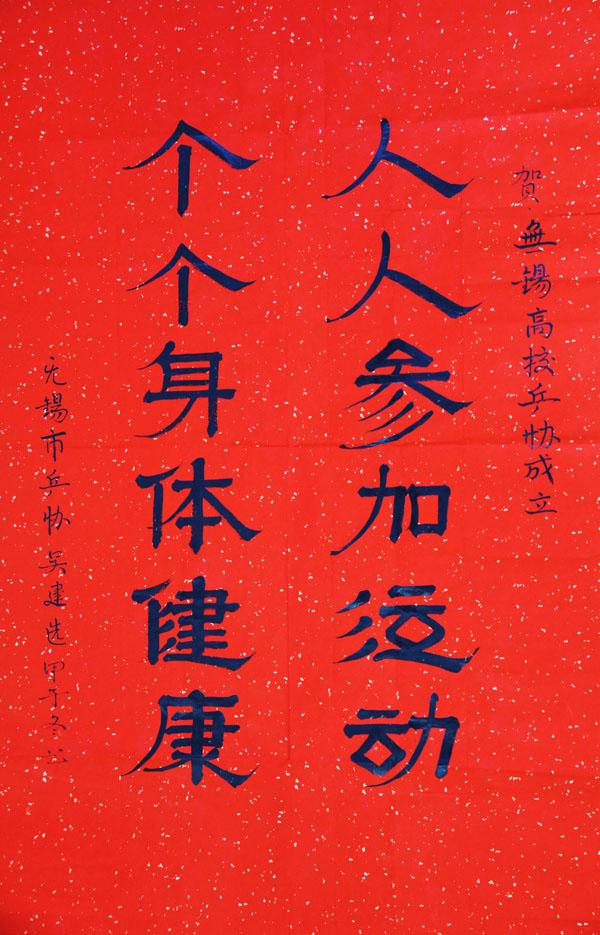 賀無锡高校乒协成立
人人参加运动
个个身体健康
无锡市乒协吴建选甲子冬